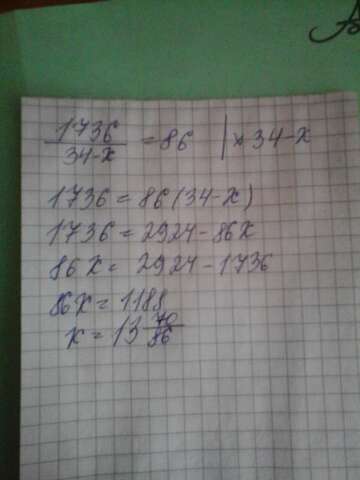 1736/(34-x) = 86 | × 34-x
1736 = 86(34-x)
1736 = 2924 - 86x
86x = 2924 - 1736
86x = 1188
x = 13 70/86